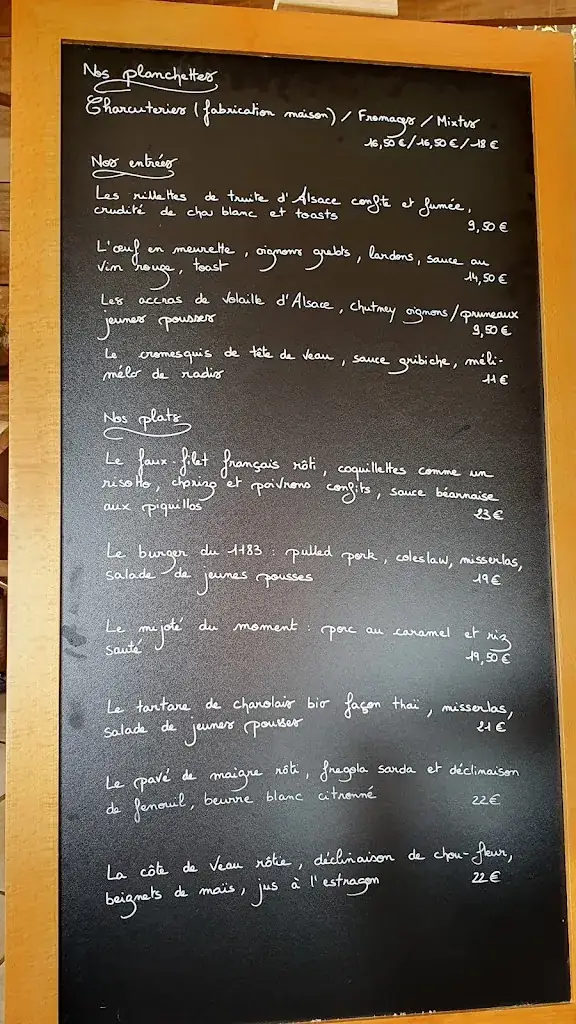 Nos planchettes
Charcuteries (fabrication maison) / Fromages / Mixtes
16,50€ / 16,50€ / 18€
Nos entrées
Les rillettes de truite d'Alsace confite et fumée,
crudité de chou blanc et toasts
9,50€
L'œuf en meurette, oignons grelots, lardons, sauce au
vin rouge, toast
14,50€
Les accras de volaille d'Alsace, chutney oignons/pruneaux
jeunes pousses
9,50€
Le cromesquis de tête de veau, sauce gribiche, méli-
mélo de radis
11€
Nos plats
Le faux-filet français rôti, coquillettes comme un
risotto, chorizo et poivrons confits, sauce béarnaise
aux piquillos
23€
Le burger du 1183 : pulled pork, coleslaw, misserlas,
salade de jeunes pousses
19€
Le mijoté du moment : porc au caramel et riz
sauté
19,50€
Le tartare de charolais bio façon thaï, misserlas,
salade de jeunes pousses
21€
Le pavé de maigre rôti, fregola sarda et déclinaison
de fenouil, beurre blanc citronné
22€
La côte de veau rôtie, déclinaison de chou-fleur,
beignets de maïs, jus à l'estragon
22€